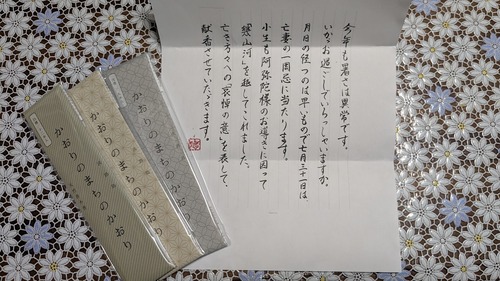 今年も暑さは異常です。
いかがお過ごしていらっしゃいますか。
月日の経つのは早いもので七月三十一日は
亡妻の一周忌に当たります。
小生も阿弥陀様のお導きに因って
を越してくれました。
亡き方々への「哀悼の意」を表して、
献香させていただきます。
かおりのまちのかおり
かおりのまちのかおり
かおりのまちのかおり